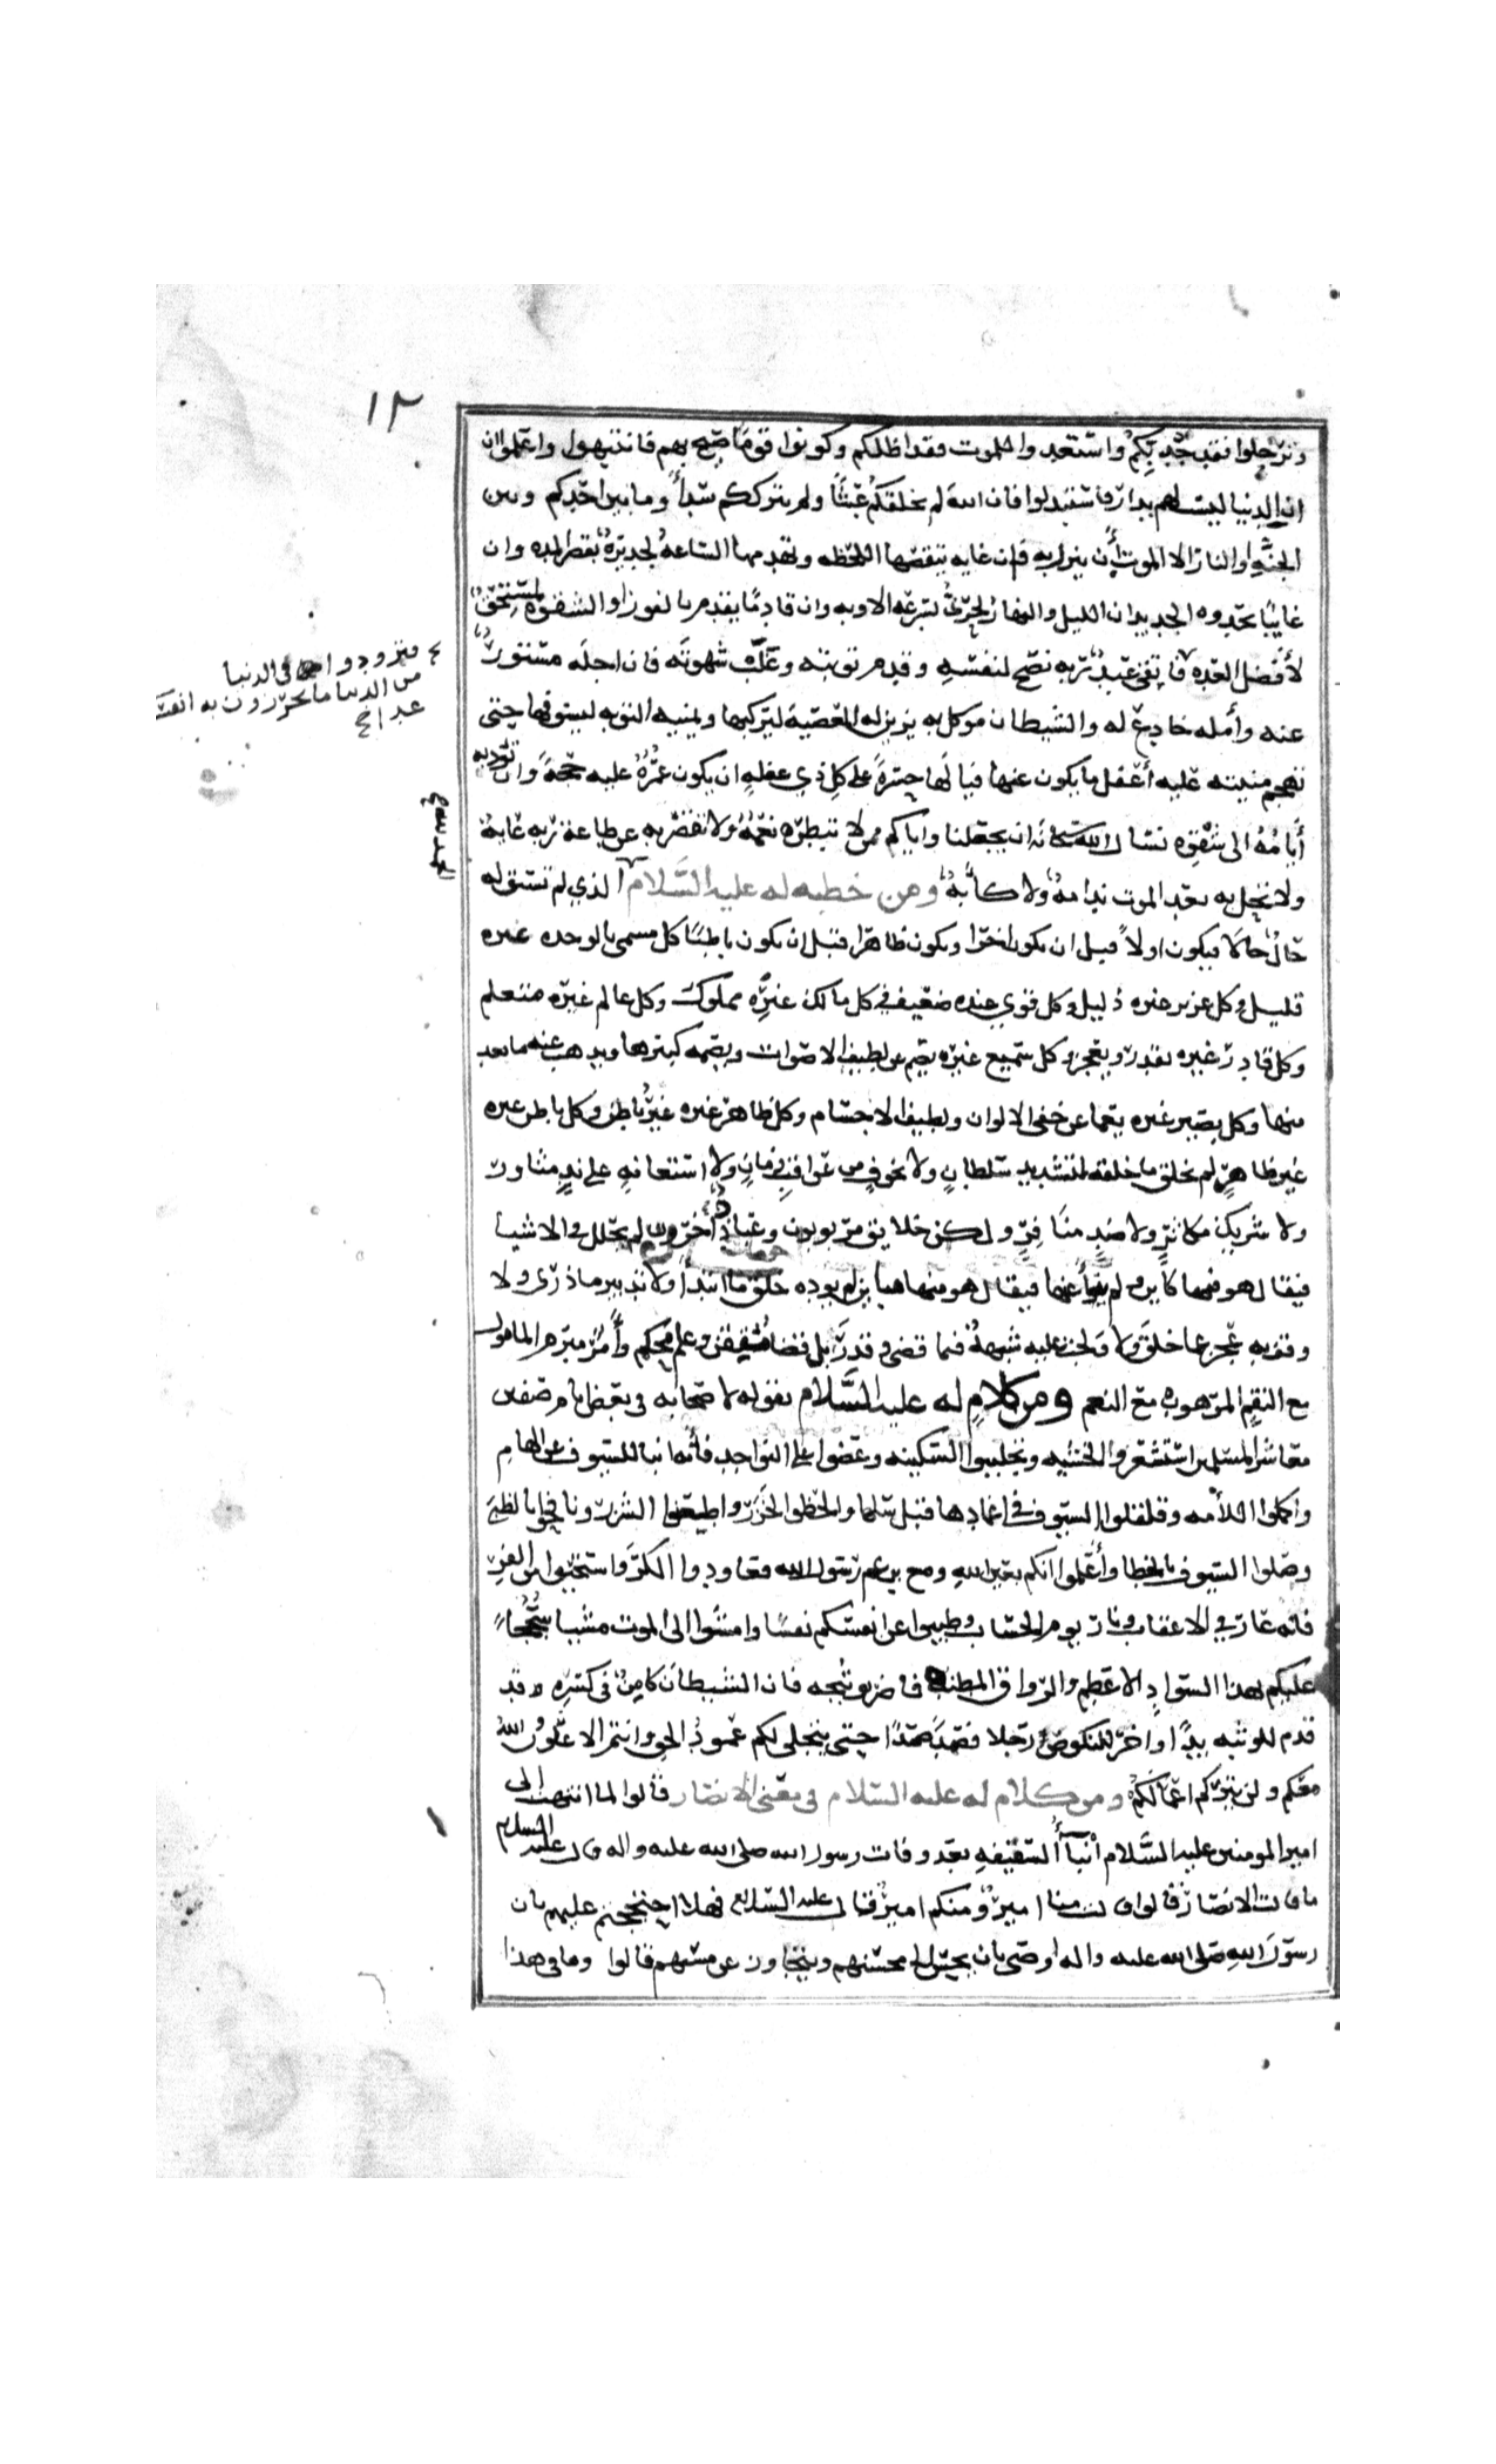 ١٢
وترحلوا فقد جد بكم واستعدوا للموت فقد اظلكم وكونوا قوما صيح بهم فانتبهوا واعلموا ان
ان الدنيا ليست لهم بدار فاستبدلوا فان الله لم يخلقكم عبثا ولم يترككم سدا وما بين احدكم وبين
الجنة او النار الا الموت أن ينزل به فان غايه تنقصها اللحظه وتهدمها الساعة لجديرة بقصر المده وان
غايبا يحدوه الجديدان الليل والنهار لحري بسرعه الاوبه وان قادما يقدم بالفوز او الشقوه لمستحق
لأفضل العده فاتقى عبد ربه نصح لنفسه وقدم توبته وغلب شهوته فان اجله مستور
عنه وأمله خادع له والشيطان موكل به يزين له المعصية ليركبها ويمنيه التوبه ليسوفها حتى
تهجم منيته عليه أغفل ما يكون عنها فيا لها حسرة على كل ذي غفله ان يكون عمره عليه حجة وان تؤديه
أيامه الى شقوه نسال الله سبحانه ان يجعلنا واياكم ممن لا تبطره نعمة ولا تقصر به عن طاعة ربه غاية
ولا تحل به بعد الموت ندامة ولا كآبة ومن خطبه له عليه السلام الذي لم تسبق له
حال حالا فيكون اولا قبل ان يكون اخرا ويكون ظاهرا قبل ان يكون باطنا كل مسمى بالوحده غيره
قليل وكل عزيز غيره ذليل وكل قوي غيره ضعيف وكل مالك غيره مملوك وكل عالم غيره متعلم
وكل قادر غيره يقدر ويعجز وكل سميع غيره يصم عن لطيف الاصوات ويصمه كبيرها ويذهب عنه ما بعد
منها وكل بصير غيره يعما عن خفي الالوان ولطيف الاجسام وكل ظاهر غيره غير باطن وكل باطن غيره
غير ظاهر لم يخلق ما خلقه لتشديد سلطان ولا تخوف من عواقب زمان ولا استعانه على ند مثاور
ولا شريك مكاثر ولا ضد منافر ولكن خلايق مربوبون وعباد داخرون لم يحلل في الاشيا
فيقال هو فيها كاين ولم ينأ عنها فيقال هو منها باين لم يوده خلق ما ابتدأ ولا تدبير ما ذرى ولا
وقف به عجز عما خلق ولا ولجت عليه شبهة فيما قضى وقدر بل قضا متقن وعلم محكم وأمر مبرم المامول
مع النقم المرهوب مع النعم ومن كلام له عليه السلام يقوله لاصحابه في بعض ايام صفين
معاشر المسلمين استشعروا الخشيه وتجلببوا السكينه وعضوا على النواجذ فأنه انبا للسيوف عن الهام
واكملوا اللأمه وقلقلوا السيوف في اغمادها قبل سلها والحظوا الخزر واطعنوا الشزر ونافحوا بالظبى
وصلوا السيوف بالخطا وأعلموا انكم بعين الله ومع بن عم رسول الله فعاودوا الكر واستحيوا من الفر
فانه عار في الاعقاب ونار يوم الحساب وطيبوا عن انفسكم نفسا وامشوا الى الموت مشيا سجحا
عليكم بهذا السواد الاعظم والرواق المطنب فاضربوا ثبجه فان الشيطان كامن في كسره وقد
قدم للوثبه يدا واخر للنكوص رجلا فصمدا صمدا حتى ينجلي لكم عمود الحق وانتم الاعلون والله
معكم ولن يتركم اعمالكم ومن كلام له عليه السلام في معنى الانصار قالوا لما انتهت الى
امير المومنين عليه السلام أنبآ السقيفه بعد وفات رسول الله صلى الله عليه واله قال عليه السلام
ما قالت الانصار قالوا قالت منا امير ومنكم امير فقال عليه السلام فهلا احتججتم عليهم بان
رسول الله صلى الله عليه واله اوصى بان يحسن الى محسنهم ويتجاوز عن مسيهم قالوا وما في هذا
فتزودوا في الدنيا
من الدنيا ما تحرزون به انفسكم
غدا خ
الحمد لله